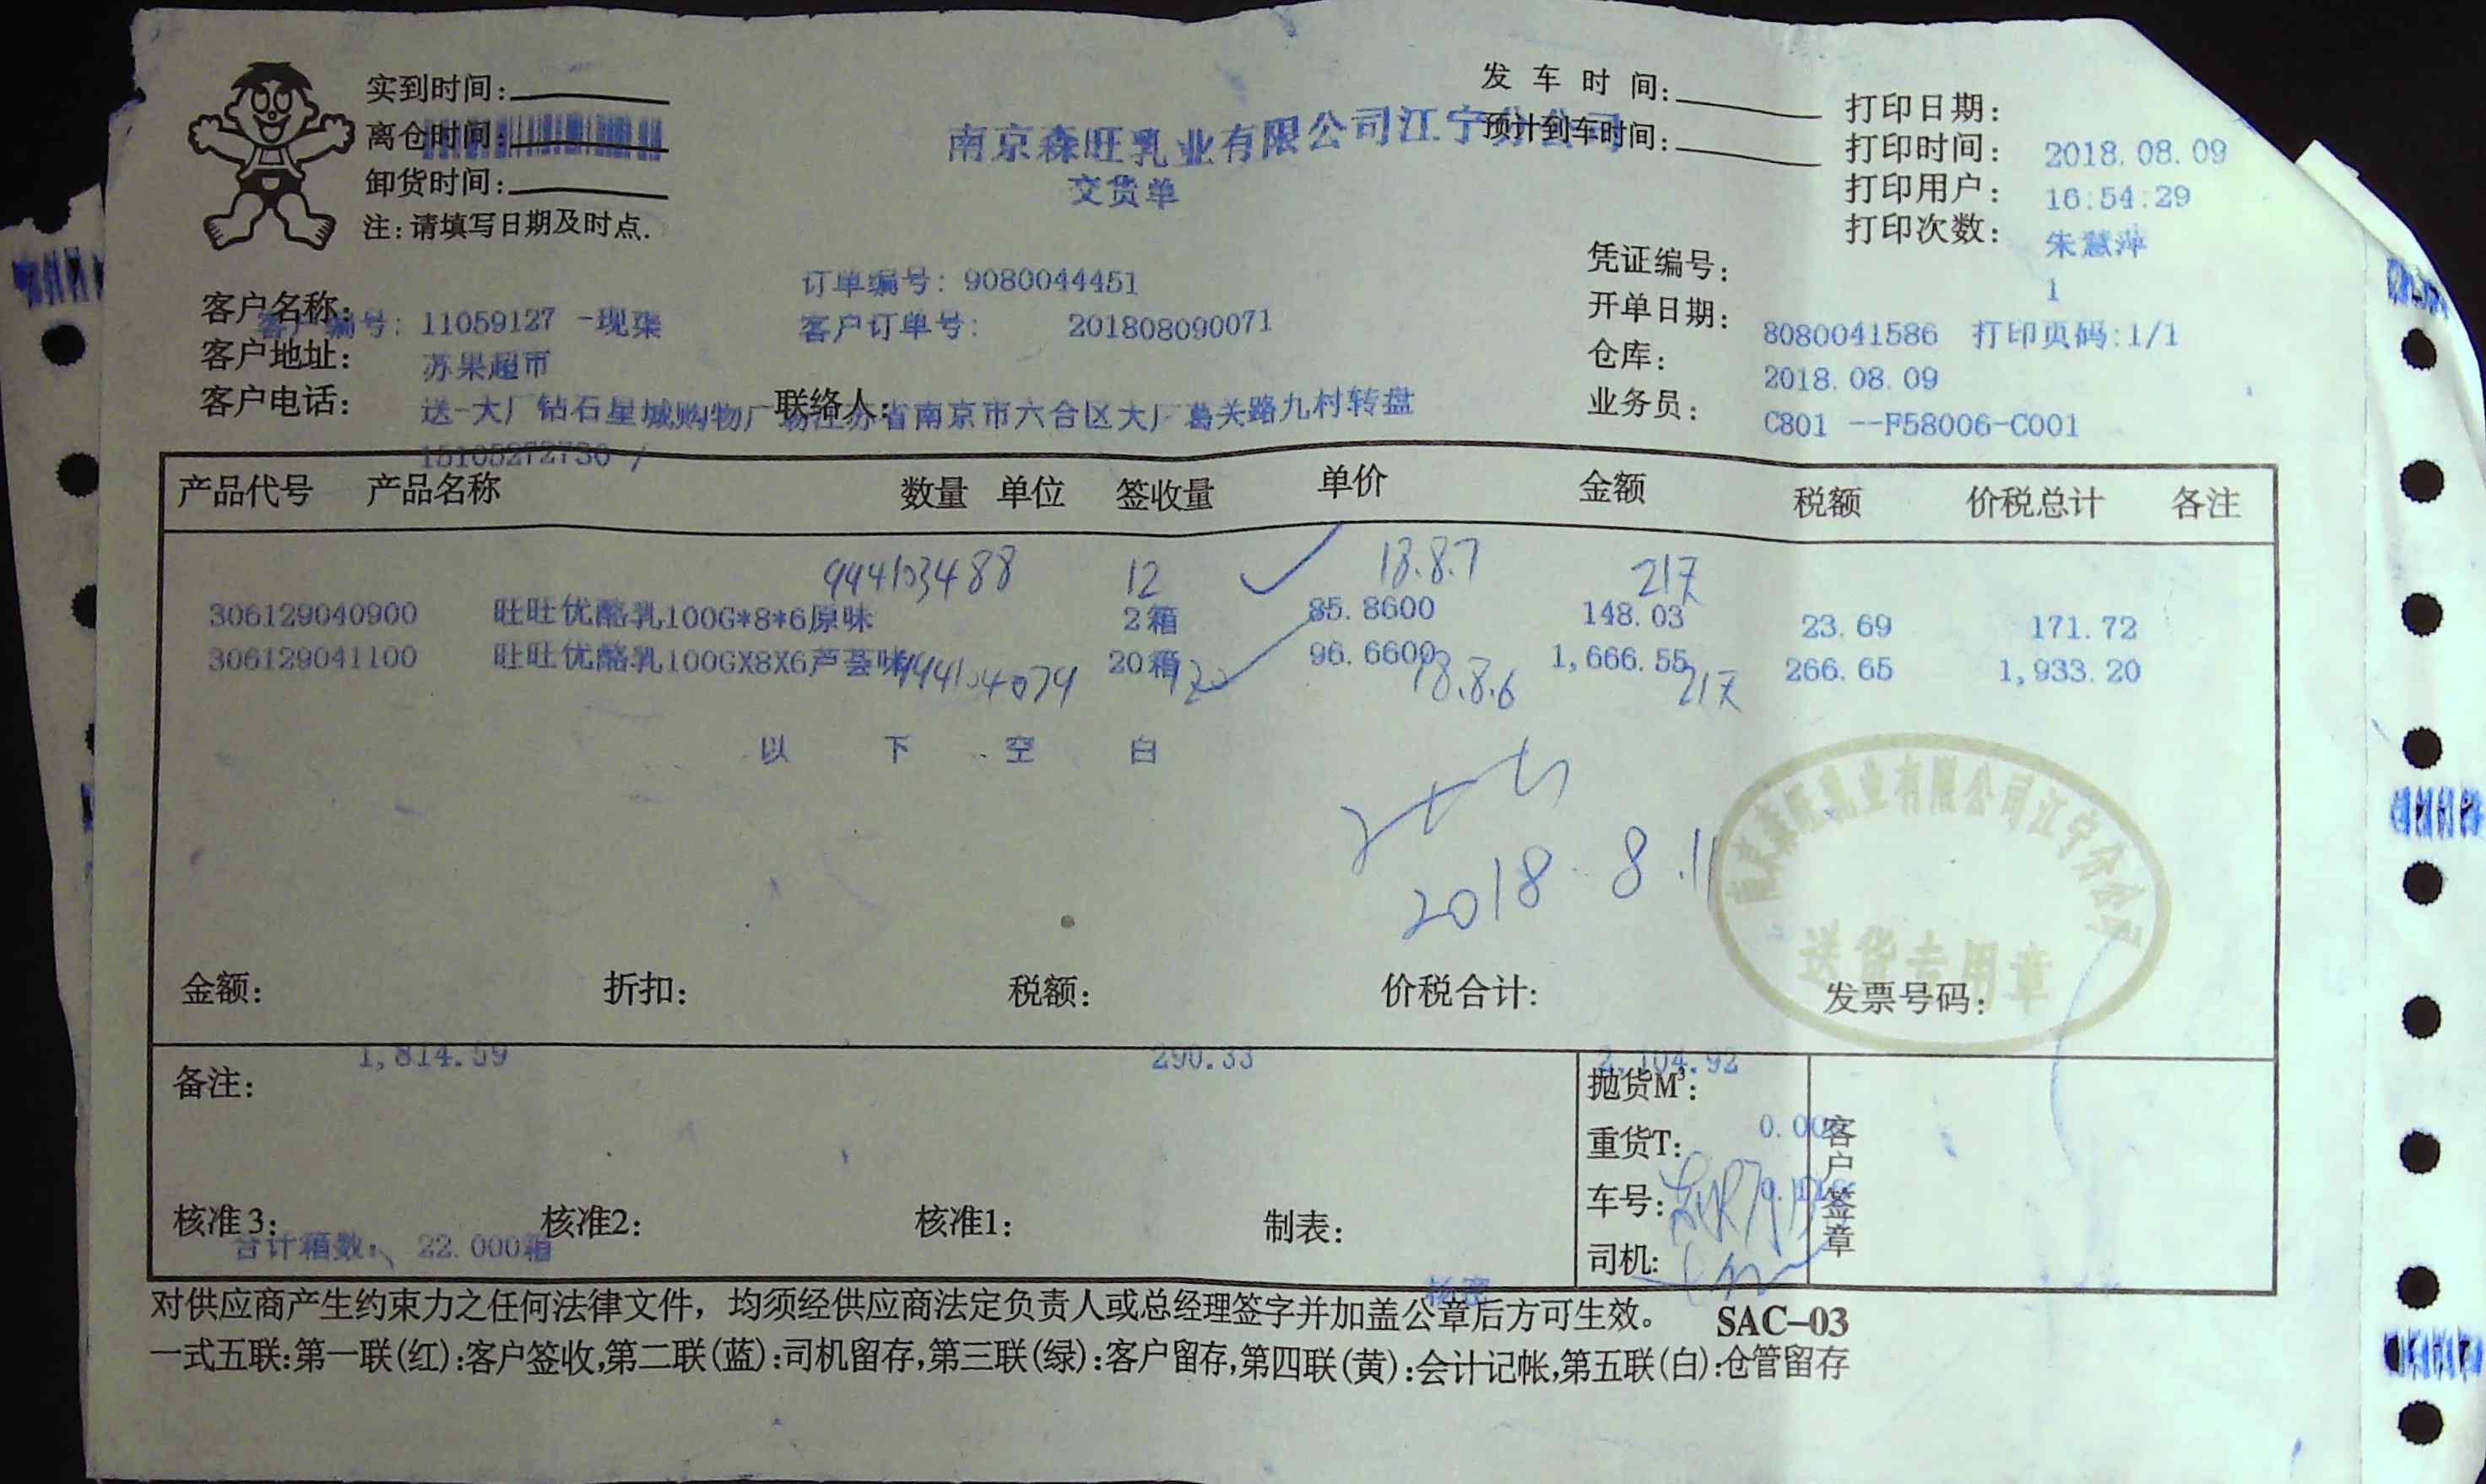 实到时间:
离仓时间:
卸货时间:
注:请填写日期及时点.
南京森旺乳业有限公司江宁分公司
交货单
发车时间:
预计到车时间:
打印日期: 2018.08.09
打印时间: 16:54:29
打印用户: 朱慧萍
打印次数: 1
订单编号: 9080044451
客户订单号: 201808090071
凭证编号: 8080041586 打印页码:1/1
开单日期: 2018.08.09
仓库: C801 --F58006-C001
业务员:
客户编号: 11059127 -现渠
客户名称: 苏果超市
客户地址: 送-大厂钻石星城购物广场江苏省南京市六合区大厂葛关路九村转盘
客户电话: 15105272730 /
联络人:
产品代号 产品名称 数量 单位 签收量 单价 金额 税额 价税总计 各注
944103488 12 18.8.7 21天
306129040900 旺旺优酪乳100G*8*6原味 2箱 85.8600 148.03 23.69 171.72
306129041100 旺旺优酪乳100GX8X6芦荟味 20箱 96.6600 1,666.55 266.65 1,933.20
944104074 18.8.6 21天
以下空白
2018.8.11
南京森旺乳业有限公司江宁分公司
送货专用章
金额: 折扣: 税额: 价税合计: 发票号码:
1,814.59 290.33 2,104.92
备注:
抛货M³:
重货T:
车号:
司机:
客户签章
核准3: 核准2: 核准1: 制表:
合计箱数: 22.000箱
对供应商产生约束力之任何法律文件，均须经供应商法定负责人或总经理签字并加盖公章后方可生效。 SAC-03
一式五联:第一联(红):客户签收,第二联(蓝):司机留存,第三联(绿):客户留存,第四联(黄):会计记帐,第五联(白):仓管留存